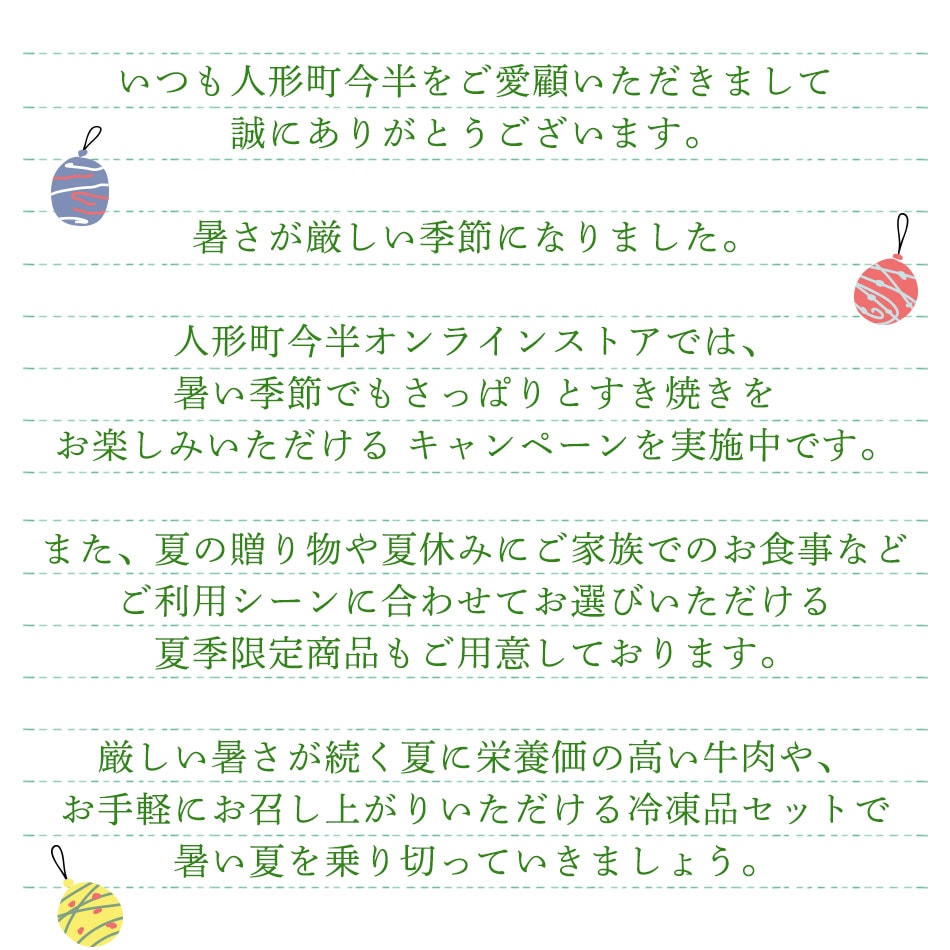 いつも人形町今半をご愛顧いただきまして
誠にありがとうございます。
暑さが厳しい季節になりました。
人形町今半オンラインストアでは、
暑い季節でもさっぱりとすき焼きを
お楽しみいただける キャンペーンを実施中です。
また、夏の贈り物や夏休みにご家族でのお食事など
ご利用シーンに合わせてお選びいただける
夏季限定商品もご用意しております。
厳しい暑さが続く夏に栄養価の高い牛肉や、
お手軽にお召し上がりいただける冷凍品セットで
暑い夏を乗り切っていきましょう。